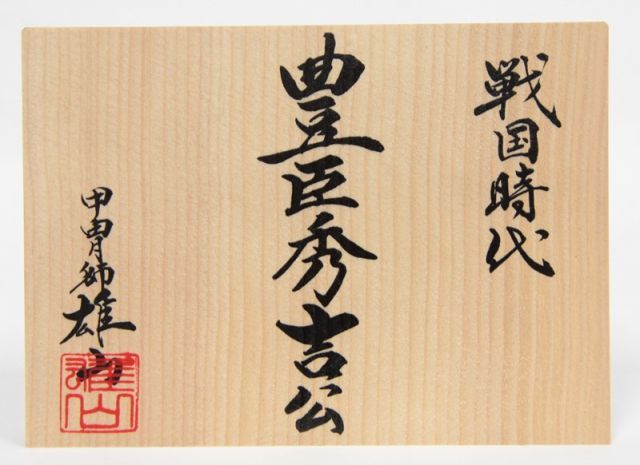 戦国時代
豊臣秀吉公
甲冑師
雄山
雄山